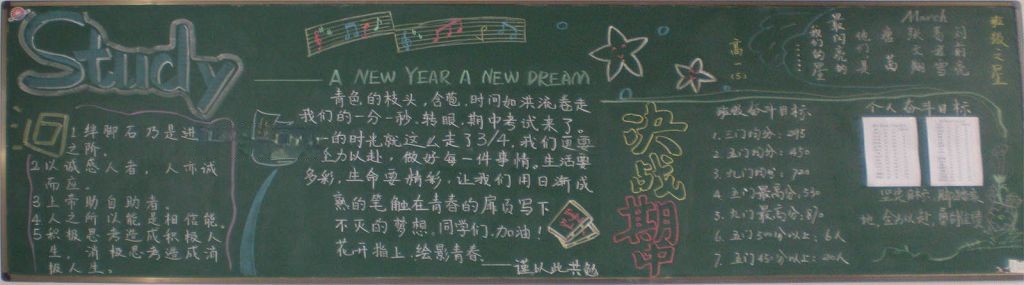 Study
1 绊脚石乃是进
之阶。
2 以诚感人者，人亦诚
而应。
3 上帝助自助者。
4 人之所以能是相信能。
5 积极思考造成积极人
生，消极思考造成消
极人生。
A NEW YEAR A NEW DREAM
青色的枝头，含苞，时间如洪流卷走
我们的一分一秒。转眼，期中考试来了。
的时光就这么走了3/4，我们更要
全力以赴，做好每一件事情。生活要
多彩，生命要精彩，让我们用日渐成
熟的笔触在青春的扉页写下
不灭的梦想。同学们，加油！
花开指上，绘影青春
——谨以此共勉
决战期中
高一(5)
班级奋斗目标
1. 三门均分：295
2. 五门均分：450
3. 九门均分：720
4. 五门最高分：530
5. 九门最高分：870
6. 五门500分以上：6人
7. 五门450分以上：20人
最闪亮的
我们的星
他们是
March
班级之星
个人奋斗目标
坚定目标
全力以赴